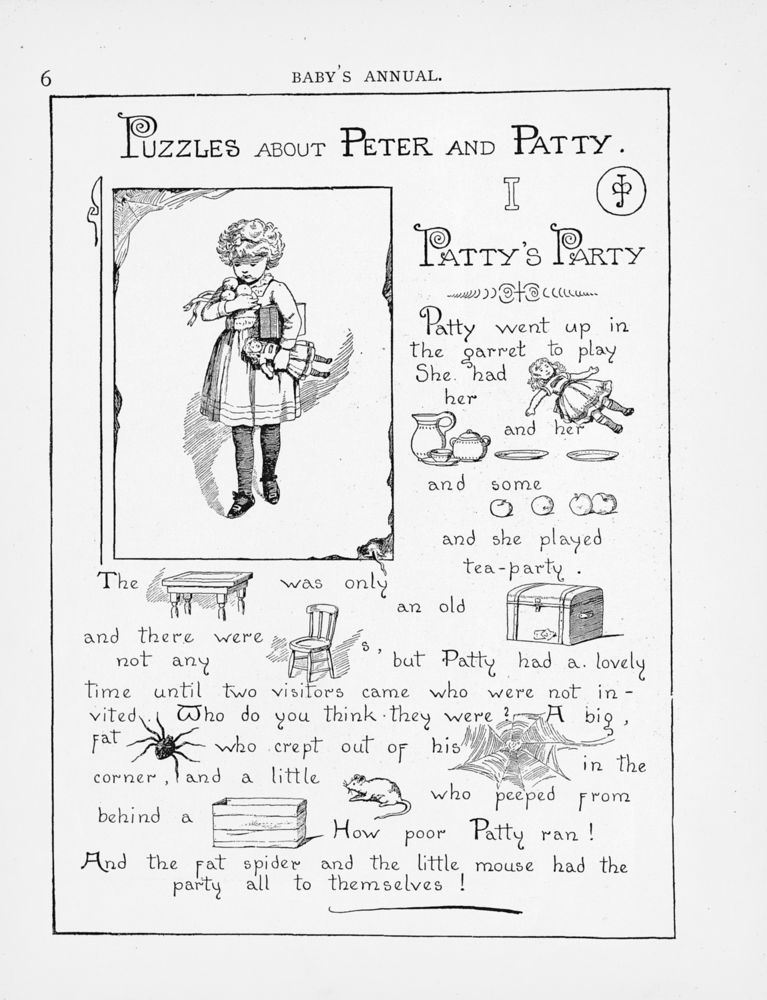 6
BABY'S ANNUAL.
PUZZLES ABOUT PETER AND PATTY.
I
PATTY'S PARTY
Patty went up in
the garret to play
She had
her
and her
and some
and she played
tea-party.
The was only
an old
and there were
not any s, but Patty had a lovely
time until two visitors came who were not in-
vited. Who do you think they were? A big,
fat who crept out of his
in the
corner, and a little
who peeped from
behind a
How poor Patty ran!
And the fat spider and the little mouse had the
party all to themselves!